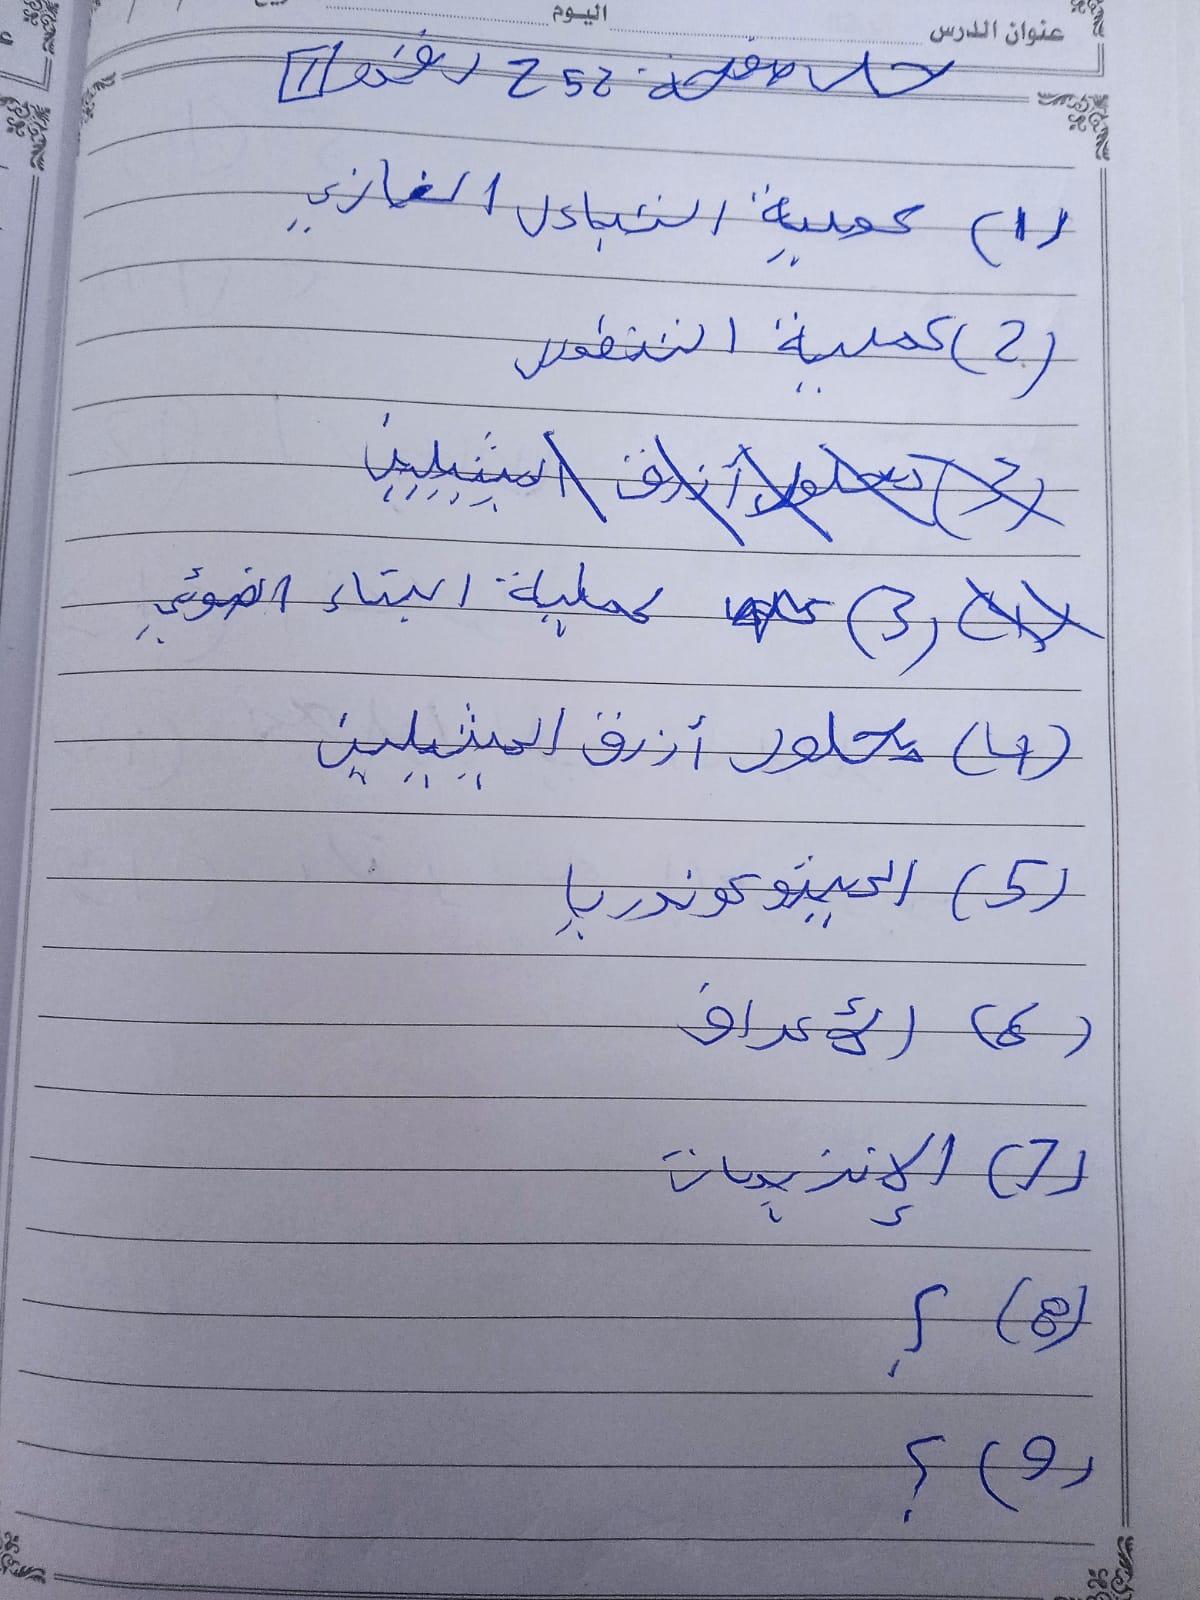 عنوان الدرس اليوم
حل صفحة 252 رقم 1
(1) عملية التبادل الغازي
(2) عملية التطور
(3) محلول أزرق الميثيلين
(3) عملية البناء الضوئي
(4) محلول أزرق الميثيلين
(5) الميتوكوندريا
(6) الأعراف
(7) الإنزيمات
(8) ؟
(9) ؟